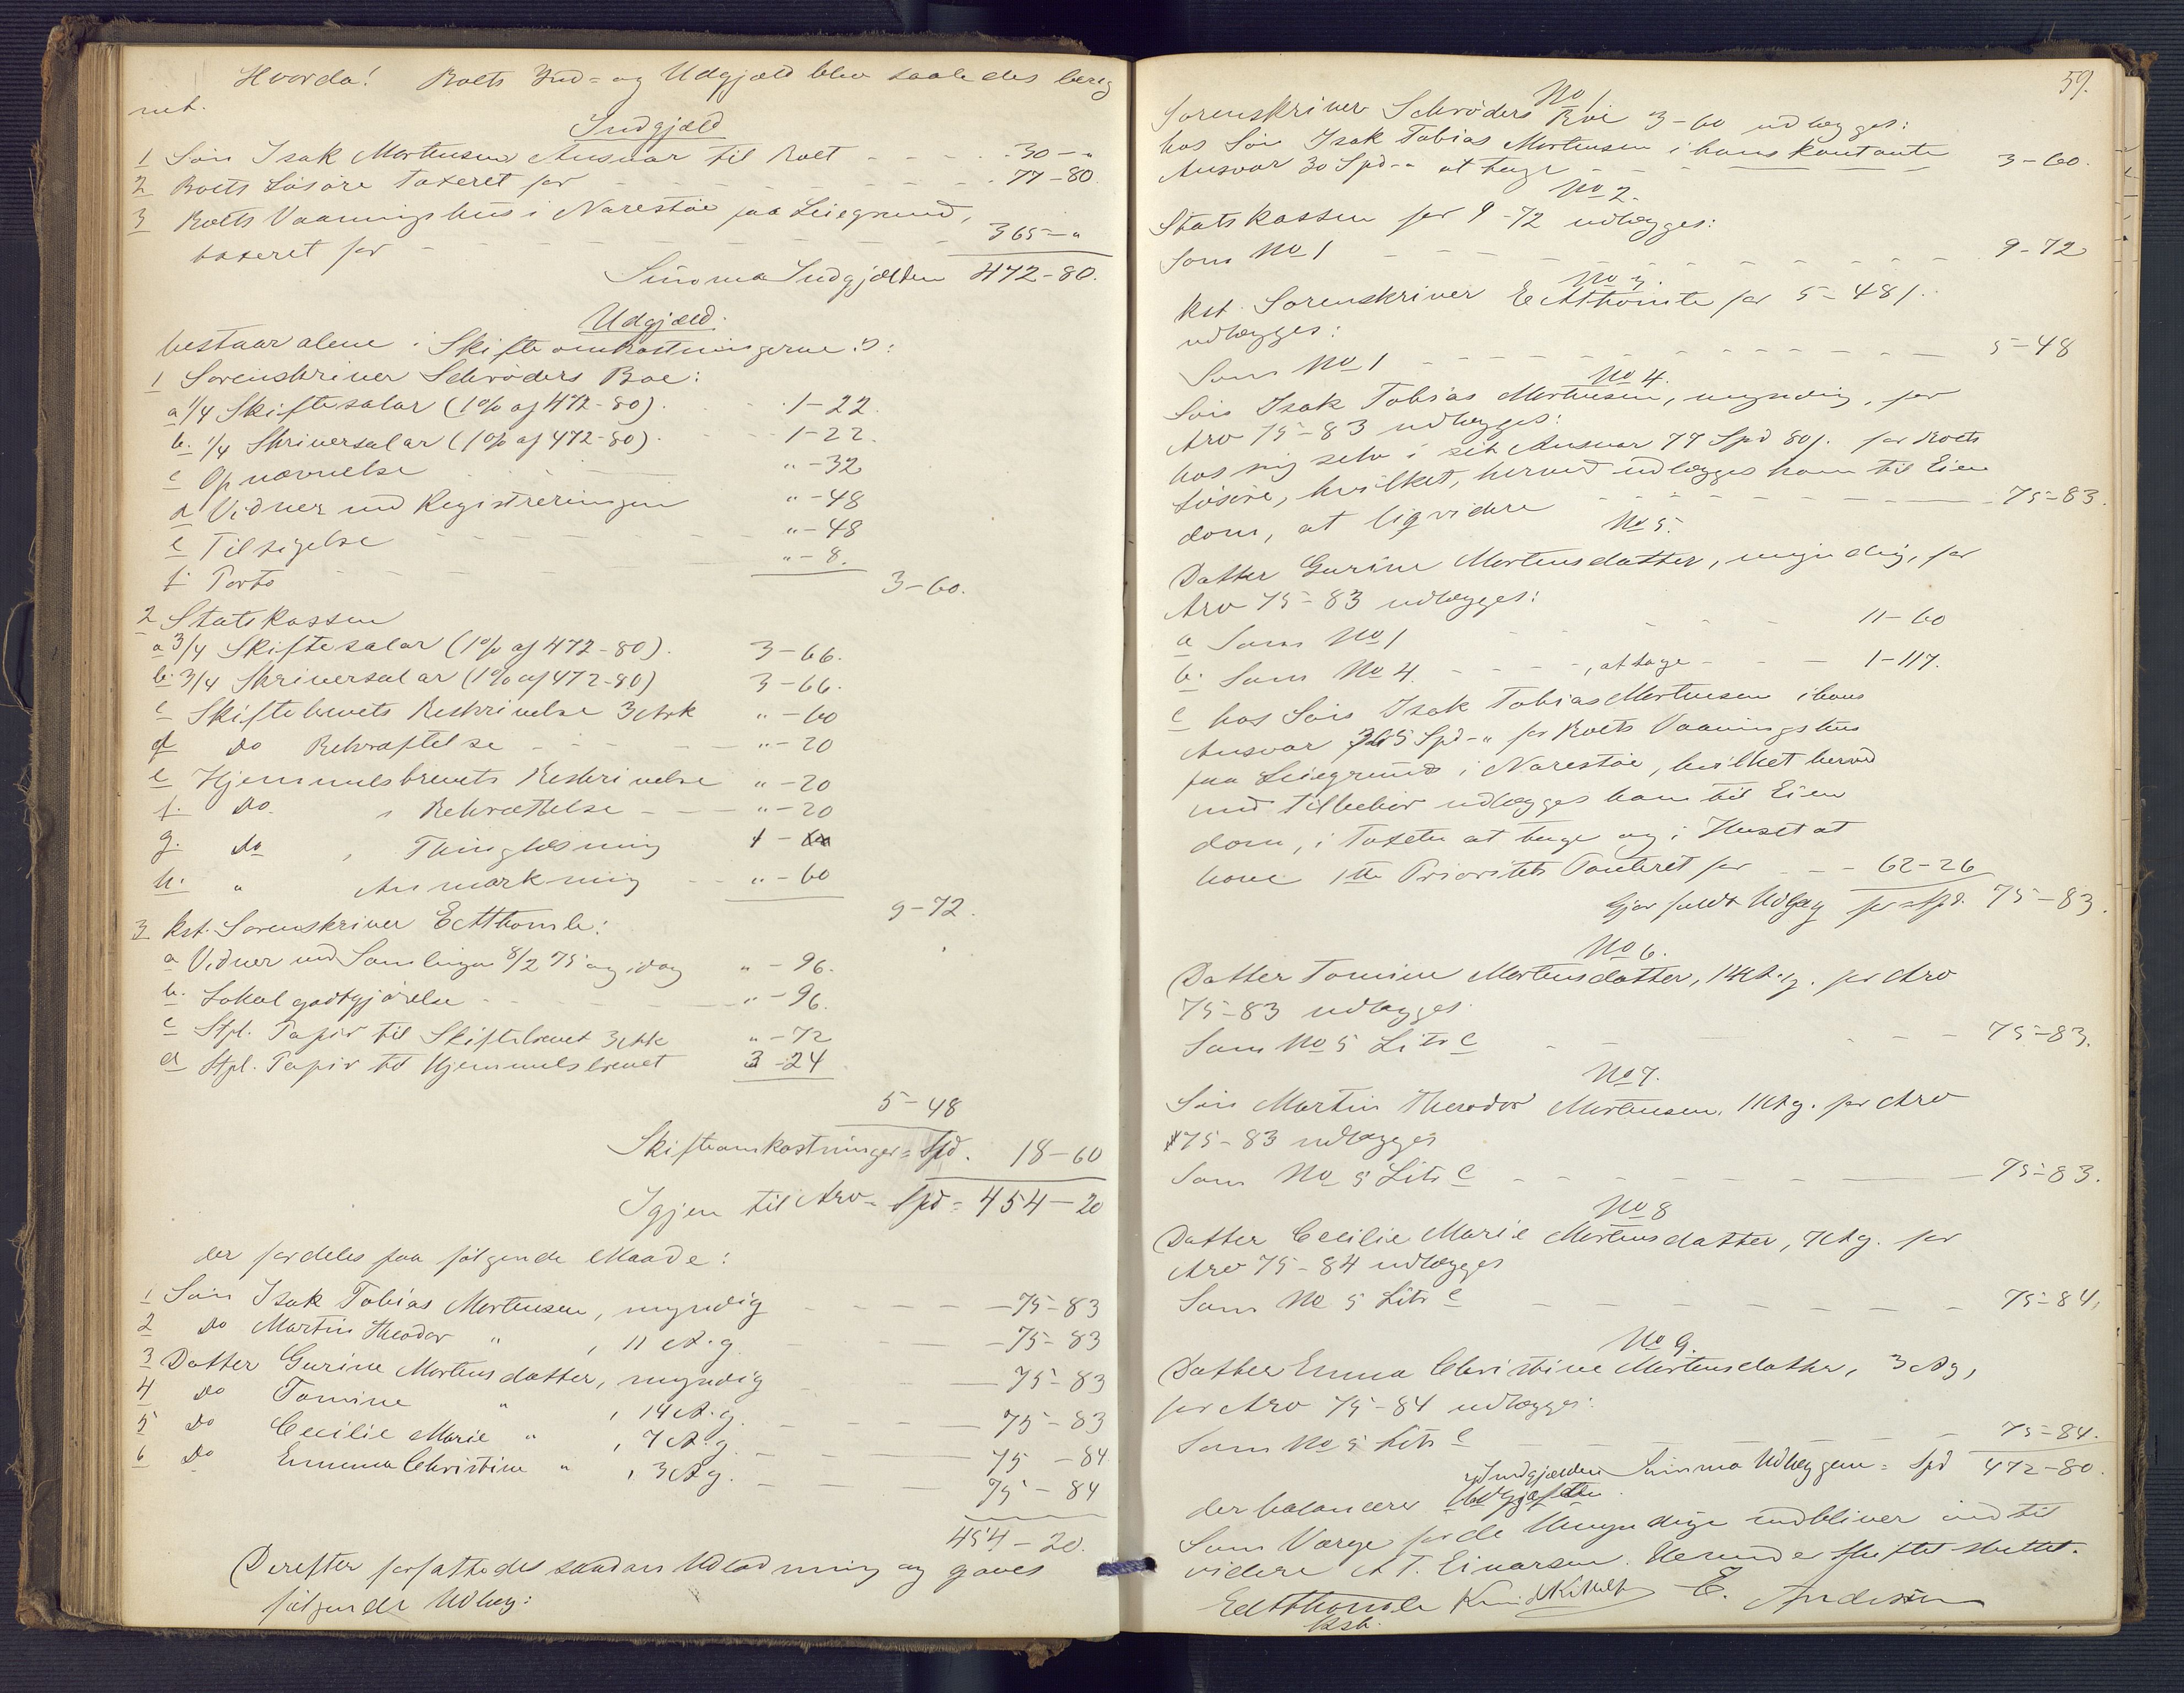 Hvorda! Boets Ind- og Udgjæld blev saaledes bereg
net.
Indgjæld
1 Søn Isak Mortensens Ansvar til Boet - - - 30 - "
2 Boets Løsøre taxeret for - - - 77 - 80.
3 Boets Vaaningshus i Narestøe paa Leiegrund,
taxeret for - - - 365 - "
Summa Indgjælden 472 - 80.
Udgjæld.
bestaar alene i Skifteomkostningerne :
1 Sorenskriver Schrøders Boe:
a 1/4 Skiftesalær (1% af 472-80) 1-22.
b. 1/4 Skriversalær (1% af 472-80). 1-22.
c Opnævnelse " - 32
d Vidner ved Registreringen " - 48
e Tilsigelse " - 48
f. Porto " - 8.
3-60.
2 Statskassen
a 3/4 Skiftesalær (1% af 472-80). 3-66.
b. 3/4 Skriversalær (1% af 472-80) 3-66.
c Skiftebrevets Beskrivelse 3 Ark " - 60
d do Bekræftelse - - " - 20
e Hjemmelsbrevets Beskrivelse " - 20
f. do. " Bekræftelse - - " - 20
g. do , Thinglæsning
h. " Anmærkning " - 60
9-72.
3 Kst. Sorenskriver E A Thomle:
a Vidner ved Samlingen 8/2 75 og idag " - 96.
b. Lokalgodtgjørelse - - " - 96.
c Stpl. Papir til Skiftebrevet 3 Ark " - 72
d Stpl. Papir til Hjemmelsbrevet 3 - 24
5-48
Skifteomkostninger = Spd. 18-60
Igjen til Arv = Spd = 454-20
der fordeles paa følgende Maade:
1 Søn Isak Tobias Mortensen, myndig - - - 75-83
2 do Martin Theodor " , 11 A. g. - - 75-83
3 Datter Gurine Mortensdatter, myndig - - 75-83
4 do Tomine " , 14 A. g. - - 75-83
5 do Cecilie Marie " , 7 A. g. - - 75-84
6 do Emma Christine " , 3 A g. - - 75-84
454-20.
Derefter forfattedes saadan Udlodning og gaves
følgende Udlæg:
59.
No 1
Sorenskriver Schrøders Boe 3-60 udlægges:
hos Søn Isak Tobias Mortensen i hans kontante
Ansvar 30 Spd - " at tage - - 3-60.
No 2.
Statskassen for 9-72 udlægges:
Som No 1 - - - 9-72
No 3.
Kst. Sorenskriver E A Thomle for 5-48 ſ.
udlægges:
Som No 1 - - - 5-48
No 4.
Søn Isak Tobias Mortensen, myndig, for
Arv 75-83 udlægges:
hos sig selv i sit Ansvar 77 Spd 80 ſ. for Boets
Løsøre, hvilket, herved udlægges ham til Eien
dom, at liqvidere - - - 75-83.
No 5.
Datter Gurine Mortensdatter, myndig, for
Arv 75-83 udlægges:
a Som No 1 - - - 11-60
b. Som No 4. - - , at tage - - 1-117.
c hos Søn Isak Tobias Mortensen i hans
Ansvar 365 Spd - " for Boets Vaaningshus
paa Leiegrund i Narestøe, hvilket herved
med Tilbehør udlægges ham til Eien
dom, i Taxten at tage og i Huset at
have 1ste Prioritets Panteret for - - 62-26
Gjør fuldt Udlæg for Spd. 75-83.
No 6.
Datter Tomine Mortensdatter, 14 A. g. for Arv
75-83 udlægges
Som No 5 Litr c - - - 75-83.
No 7.
Søn Martin Theodor Mortensen, 11 A g. for Arv
75-83 udlægges
Som No 5 Litr c - - - 75-83.
No 8
Datter Cecilie Marie Mortensdatter, 7 A g. for
Arv 75-84 udlægges
Som No 5 Litr c - - - 75-84,
No 9.
Datter Emma Christine Mortensdatter, 3 A g,
for Arv 75-84 udlægges:
Som No 5 Litr c - - - 75-84.
Summa Udlæggene = Spd 472-80.
der balancerer Indgjælden.
Som Værge for de Umyndige vedbliver indtil
videre A T. Einarsen. Herved Skiftet sluttet.
E A Thomle E. Andersen
Kst.